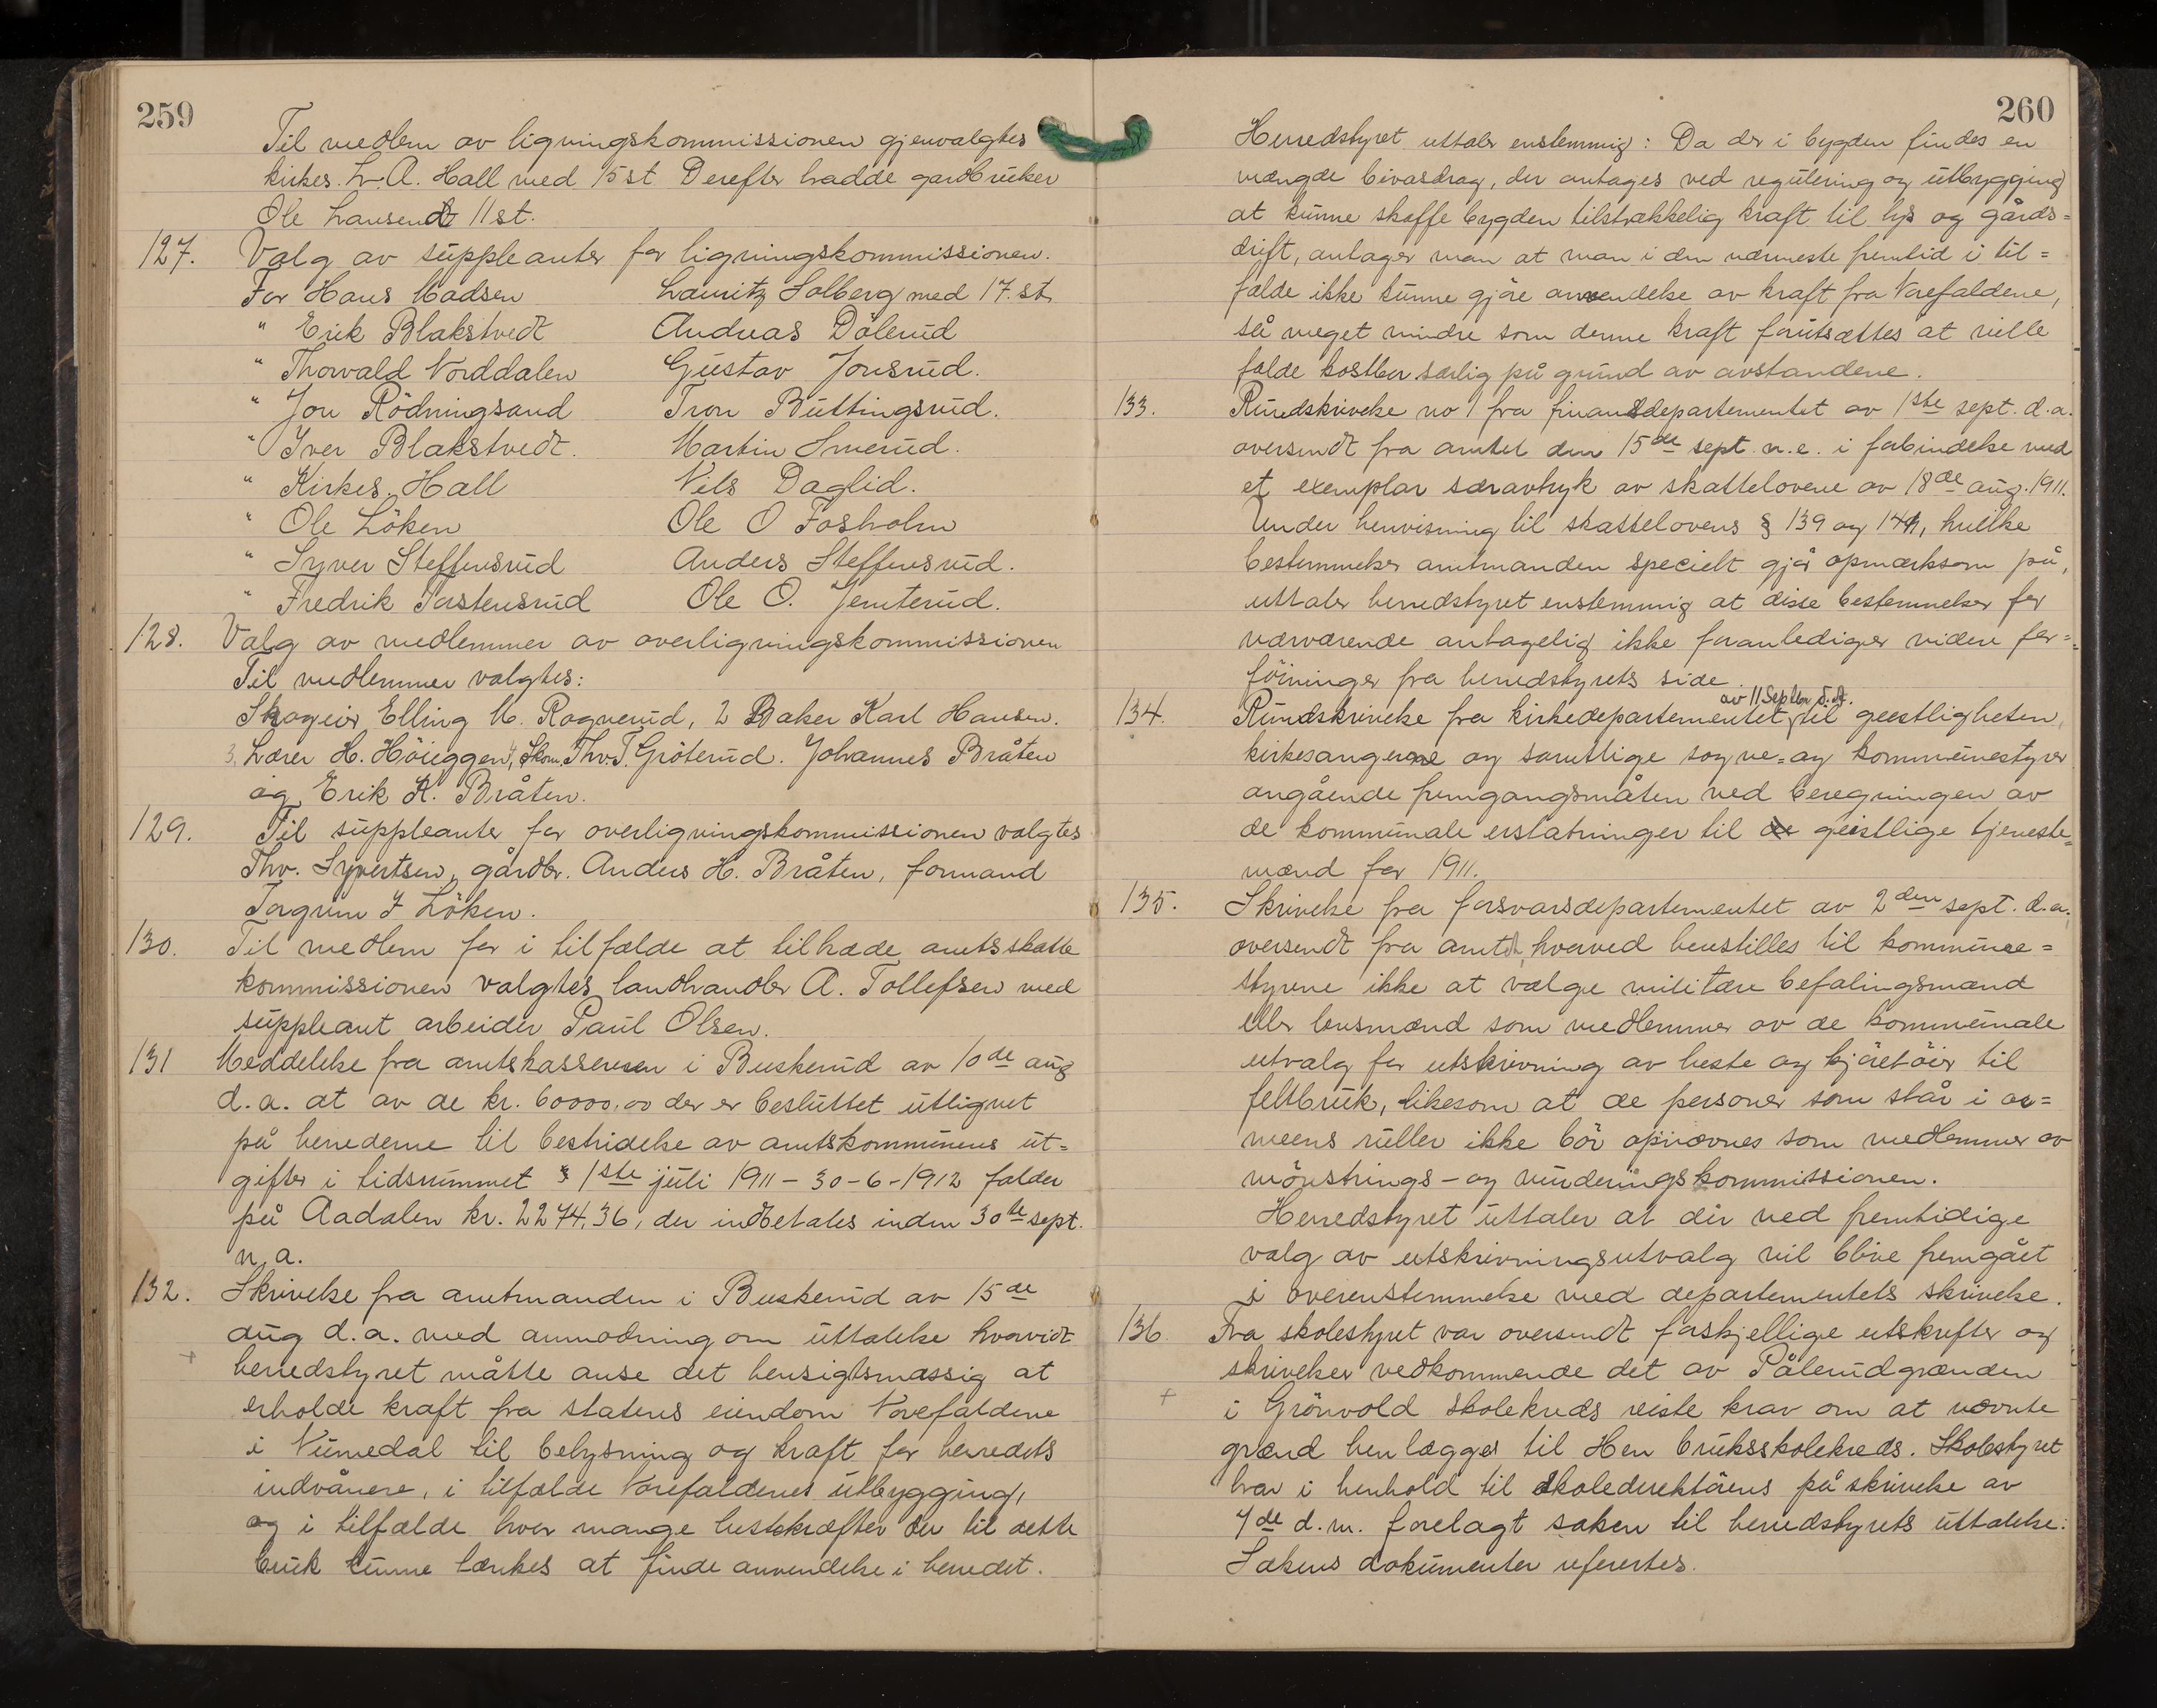 259
Til medlem av ligningskommissionen gjenvalgtes
kirkes. L. A. Hall med 15 st Derefter hadde gardbruker
Ole Lausendt 11 st.
127. Valg av suppleanter for ligningskommissionen.
For Hans Madsen Lauritz Solberg med 17. st.
" Erik Blakstvedt Andreas Dölerud
" Thorvald Norddalen Gustav Jonsrud.
" Jon Rödningsand Tron Buttingsrud.
" Iver Blakstvedt. Martin Smerud.
" Kirkes. Hall Nils Daglid.
" Ole Löken Ole O Fosholm
" Syver Steffensrud Anders Steffensrud.
" Fredrik Torstensrud Ole O. Jemterud.
128. Valg av medlemmer av overligningskommissionen
Til medlemmer valgtes:
Skogeier Elling M. Rognerud, 2 Baker Karl Hansen.
3, Lærer H. Höieggen, 4, Skom. Thv. T. Gröterud. Johannes Bråten
og Erik K. Bråten.
129. Til suppleanter for overligningskommissionen valgtes
Thv. Syvertsen, gårdbr. Anders H. Bråten, formand
Torgrim I Löken.
130. Til medlem for i tilfælde at tiltræde amtsskatte
kommissionen valgtes landhandler A. Tollefsen med
suppleant arbeider Paul Olsen.
131 Meddelelse fra amtskassereren i Buskerud av 10de aug
d.a. at av de kr. 60000,00 der er besluttet utlignet
på herrederne til bestridelse av amtskommunens ut=
gifter i tidsrummet 1ste juli 1911 - 30-6-1912 falder
på Aadalen kr. 2274,36, der indbetales inden 30te sept.
n. a.
132. Skrivelse fra amtmanden i Buskerud av 15de
aug d.a. med anmodning om uttalelse hvorvidt
+ herredstyret måtte anse det hensigtsmæssig at
erholde kraft fra statens eiendom Norefaldene
i Numedal til belysning og kraft for herredets
indvånere, i tilfælde Norefaldenes utbygging,
og i tilfælde hvor mange hestekræfter der til dette
bruk kunne tænkes at finde anvendelse i herredet.
260
Herredstyret uttaler enstemmig: Da der i bygden findes en
mængde bivasdrag, der antages ved regulering og utbygging
at kunne skaffe bygden tilstrækkelig kraft til lys og gårds=
drift, antager man at man i den nærmeste fremtid i til=
fælde ikke kunne gjöre anvendelse av kraft fra Norefaldene,
så meget mindre som denne kraft forutsættes at ville
falde kostbar særlig på grund av avstandene.
133. Rundskrivelse no 1 fra finansdepartementet av 1ste sept. d.a.
oversendt fra amtet den 15de sept. n.e. i forbindelse med
et exemplar særavtryk av skattelovene av 18de aug. 1911.
Under henvisning til skattelovens § 139 og 141, hvilke
bestemmelser amtmanden specielt gjör opmærksom på,
uttaler herredstyret enstemmig at disse bestemmelser for
nærværende antagelig ikke foranlediger videre for=
föininger fra herredstyrets side.
134. Rundskrivelse fra kirkedepartementet av 11 Septbr d.å. til geestligheten,
kirkesangerne og samtlige sogne= og kommunestyrer
angående fremgangsmåten ved beregningen av
de kommunale erstatninger til de geistlige tjeneste=
mænd for 1911.
135. Skrivelse fra forsvarsdepartementet av 2den sept. d.a.
oversendt fra amtet, hvorved henstilles til kommune=
styrene ikke at vælge militære befalingsmænd
eller lensmænd som medlemmer av de kommunale
utvalg for utskrivning av heste og kjöretöier til
feltbruk, likesom at de personer som står i ar=
meens ruller ikke bör opnævnes som medlemmer av
mönstrings- og vurderingskommissionen.
Herredstyret uttaler at der ved fremtidige
valg av utskrivningsutvalg vil blive fremgået
i overenstemmelse med departementets skrivelse.
136. Fra skolestyret var oversendt forskjellige utskrifter og
skrivelser vedkommende det av Pålerudgrænden
+ i Grönvold skolekreds reiste krav om at nævnte
grænd henlægges til Hen bruksskolekreds. Skolestyret
har i henhold til skoledirektörens påskrivelse av
4de d.m. forelagt saken til herredstyrets uttalelse.
Sakens dokumenter refereres.